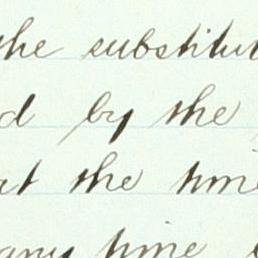 the substitut
d by the
at the time
any time